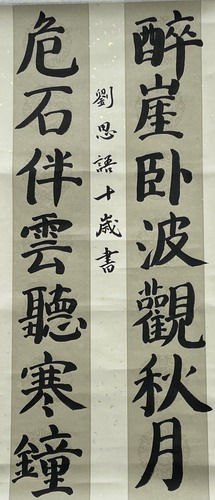 醉崖卧波觀秋月
危石伴雲聽寒鐘
劉思語十歲書